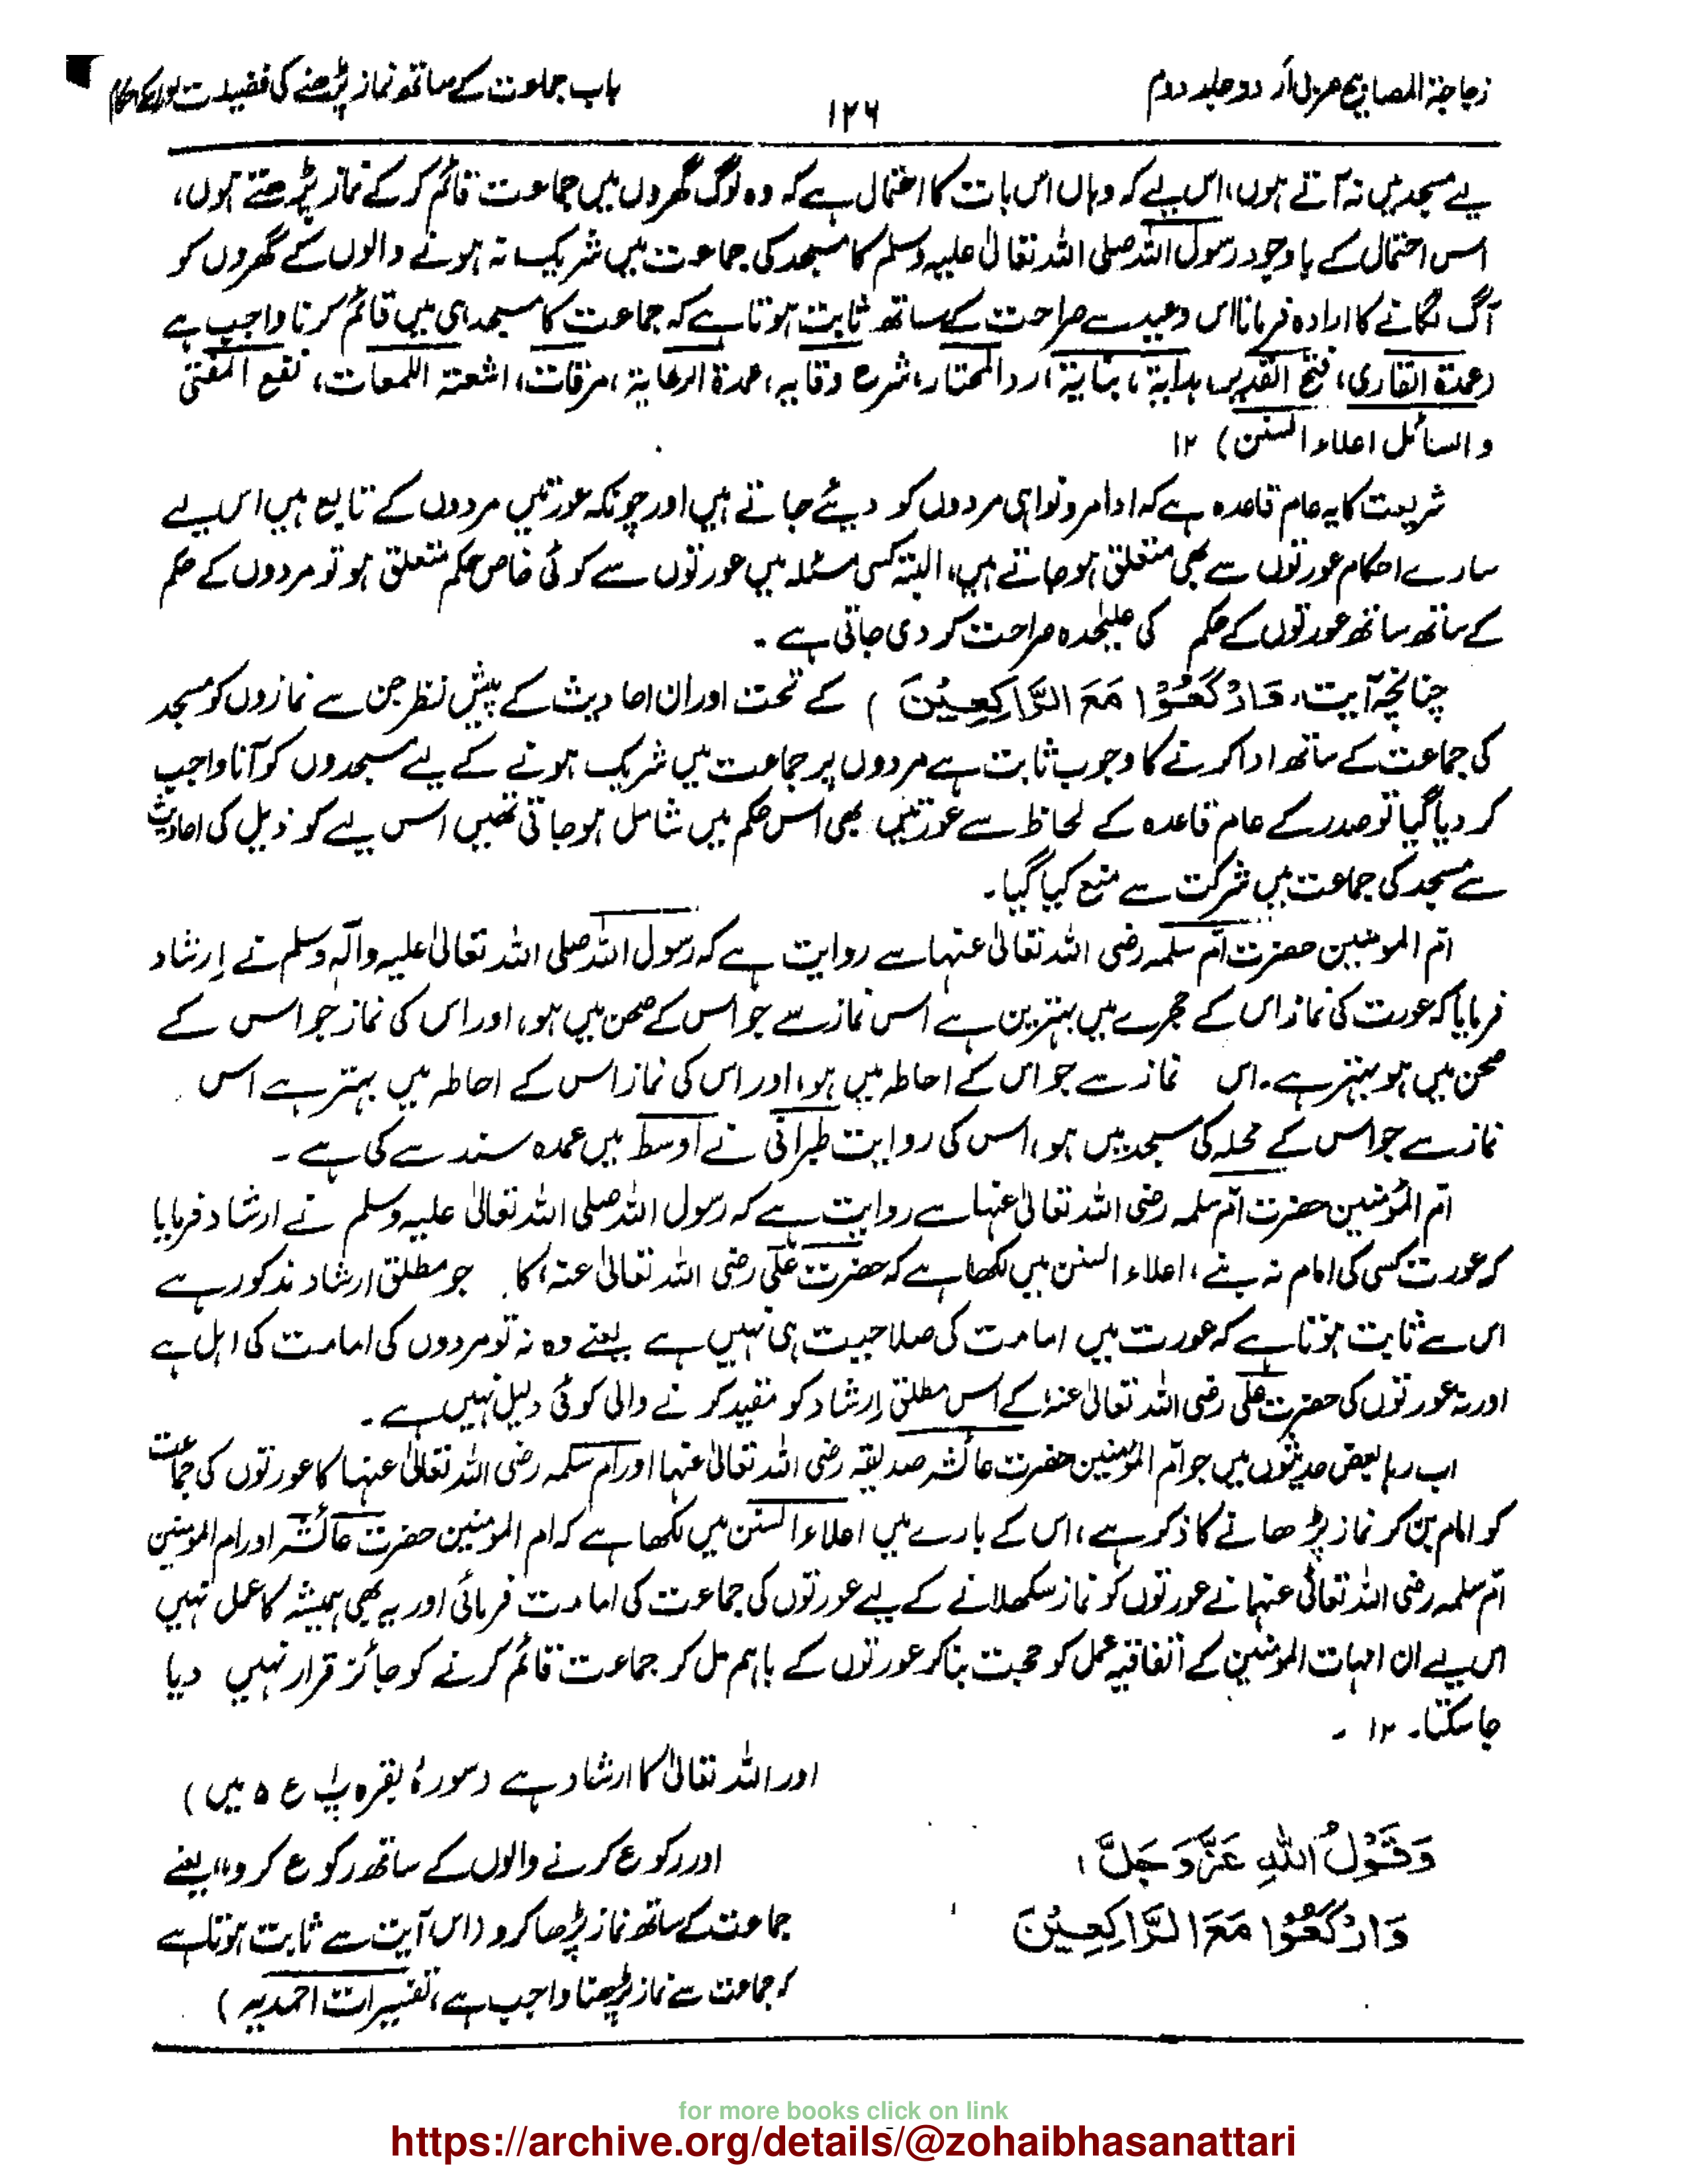 زجاجۃ المصابیح عربی اُردو جلد دوم
۱۲۶
باب جماعت کے ساتھ نماز پڑھنے کی فضیلت اور احکام
لیے مسجد میں نہ آتے ہوں، اس لیے کہ وہاں اس بات کا احتمال ہے کہ وہ لوگ گھروں میں جماعت قائم کر کے نماز پڑھتے ہوں،
اس احتمال کے باوجود رسول اللہ صلی اللہ تعالیٰ علیہ وسلم کا مسجد کی جماعت میں شریک نہ ہونے والوں کے گھروں کو
آگ لگانے کا ارادہ فرمانا اس وعید سے صراحت کے ساتھ ثابت ہوتا ہے کہ جماعت کا مسجد ہی میں قائم کرنا واجب ہے
(عمدۃ القاری، فتح القدیر، ہدایۃ، بنایۃ، ردالمحتار، شرح وقایہ، عمدۃ الرعایۃ، مرقات، اشعتہ اللمعات، نفع المفتی
والسائل اعلاء السنن) ۱۲
شریعت کا یہ عام قاعدہ ہے کہ اوامر و نواہی مردوں کو دیئے جاتے ہیں اور چونکہ عورتیں مردوں کے تابع ہیں اس لیے
سارے احکام عورتوں سے بھی متعلق ہو جاتے ہیں، البتہ کسی مسئلہ میں عورتوں سے کوئی خاص حکم متعلق ہو تو مردوں کے حکم
کے ساتھ ساتھ عورتوں کے حکم کی علیٰحدہ صراحت کر دی جاتی ہے۔
چنانچہ آیت، وَارْكَعُوْا مَعَ الرَّاكِعِيْنَ ) کے تحت اور ان احادیث کے پیش نظر جن سے نمازوں کو مسجد
کی جماعت کے ساتھ ادا کرنے کا وجوب ثابت ہے مردوں پر جماعت میں شریک ہونے کے لیے مسجدوں کو آنا واجب
کر دیا گیا تو صدر کے عام قاعدہ کے لحاظ سے عورتیں بھی اس حکم میں شامل ہو جاتی تھیں اس لیے کو ذیل کی احادیث
سے مسجد کی جماعت میں شرکت سے منع کیا گیا۔
اُم المومنین حضرت اُم سلمہ رضی اللہ تعالیٰ عنہا سے روایت ہے کہ رسول اللہ صلی اللہ تعالیٰ علیہ وآلہ وسلم نے ارشاد
فرمایا کہ عورت کی نماز اس کے حجرے میں بہترین ہے اس نماز سے جو اس کے صحن میں ہو، اور اس کی نماز جو اس کے
صحن میں ہو بہتر ہے۔ اس نماز سے جو اس کے احاطہ میں ہو، اور اس کی نماز اس کے احاطہ میں بہتر ہے اس
نماز سے جو اس کے محلہ کی مسجد میں ہو، اس کی روایت طبرانی نے اوسط میں عمدہ سند سے کی ہے۔
اُم المؤمنین حضرت اُم سلمہ رضی اللہ تعالیٰ عنہا سے روایت ہے کہ رسول اللہ صلی اللہ تعالیٰ علیہ وسلم نے ارشاد فرمایا
کہ عورت کسی کی امام نہ بنے، اعلاء السنن میں لکھا ہے کہ حضرت علی رضی اللہ تعالیٰ عنہ، کا جو مطلق ارشاد مذکور ہے
اس سے ثابت ہوتا ہے کہ عورت میں امامت کی صلاحیت ہی نہیں ہے یعنے وہ نہ تو مردوں کی امامت کی اہل ہے
اور نہ عورتوں کی حضرت علی رضی اللہ تعالیٰ عنہ کے اس مطلق ارشاد کو مقید کرنے والی کوئی دلیل نہیں ہے۔
اب رہا بعض حدیثوں میں جو اُم المؤمنین حضرت عائشہ صدیقہ رضی اللہ تعالیٰ عنہا اور اُم سلمہ رضی اللہ تعالیٰ عنہا کا عورتوں کی جماعت
کو امام بن کر نماز پڑھانے کا ذکر ہے، اس کے بارے میں اعلاء السنن میں لکھا ہے کہ ام المومنین حضرت عائشہ اور ام المومنین
اُم سلمہ رضی اللہ تعالیٰ عنہما نے عورتوں کو نماز سکھلانے کے لیے عورتوں کی جماعت کی امامت فرمائی اور یہ بھی ہمیشہ کا عمل نہیں
اس لیے ان امہات المؤمنین کے اتفاقیہ عمل کو حجت بنا کر عورتوں کے باہم مل کر جماعت قائم کرنے کو جائز قرار نہیں دیا
جا سکتا۔ ۱۲ ۔
وَقَوْلُ اللّٰهِ عَزَّوَجَلَّ،
وَارْكَعُوْا مَعَ الرَّاكِعِيْنَ
اور اللہ تعالیٰ کا ارشاد ہے (سورۂ بقرہ پ ع ۵ میں)
اور رکوع کرنے والوں کے ساتھ رکوع کرو،، یعنے
جماعت کے ساتھ نماز پڑھا کرو (اس آیت سے ثابت ہوتا ہے
کہ جماعت سے نماز پڑھنا واجب ہے، تفسیرات احمدیہ)
for more books click on link
https://archive.org/details/@zohaibhasanattari